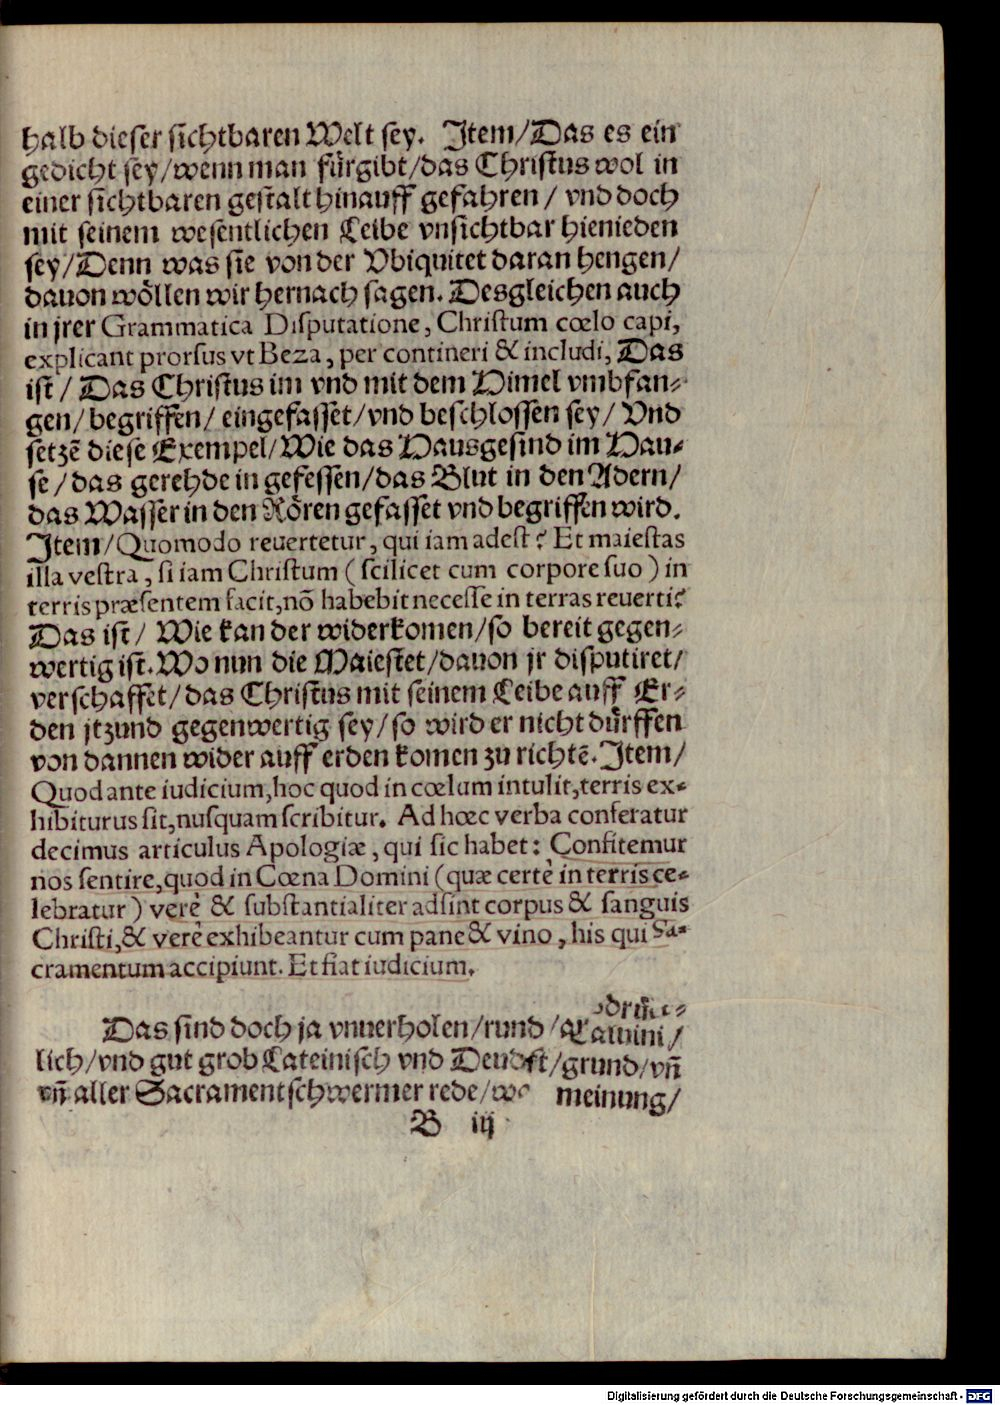 halb dieser sichtbaren Welt sey. Jtem/Das es ein
gedicht sey/wenn man fürgibt/das Christus wol in
einer sichtbaren gestalt hinauff gefahren/ vnd doch
mit seinem wesentlichen Leibe vnsichtbar hienieden
sey/Denn was sie von der Vbiquitet daran hengen/
dauon wöllen wir hernach sagen. Desgleichen auch
in jrer Grammatica Disputatione, Christum cœlo capi,
explicant prorsus vt Beza, per contineri & includi, Das
ist/ Das Christus im vnd mit dem Himel vmbfan-
gen/begriffen/ eingefasset/vnd beschlossen sey/ Vnd
setzē diese Exempel/Wie das Hausgesind im Hau-
se/das gerehde in gefessen/das Blut in den Adern/
das Wasser in den Rören gefasset vnd begriffen wird.
Jtem/Quomodo reuertetur, qui iam adest? Et maiestas
illa vestra, si iam Christum (scilicet cum corpore suo) in
terris præsentem facit,nō habebit necesse in terras reuerti?
Das ist/ Wie kan der widerkomen/so bereit gegen-
wertig ist. Wo nun die Maiestet/dauon jr disputiret/
verschaffet/das Christus mit seinem Leibe auff Er-
den jtzund gegenwertig sey/so wird er nicht dürffen
von dannen wider auff erden komen zu richtē. Jtem/
Quod ante iudicium,hoc quod in cœlum intulit,terris ex-
hibiturus sit,nusquam scribitur. Ad hœc verba conferatur
decimus articulus Apologiæ, qui sic habet: Confitemur
nos sentire,quod in Cœna Domini (quæ certè in terris ce-
lebratur) verè & substantialiter adsint corpus & sanguis
Christi,& verè exhibeantur cum pane & vino, his qui Sa-
cramentum accipiunt. Et fiat iudicium.
Das sind doch ja vnuerholen/rund/
lich/vnd gut grob Lateinisch vnd /grund/vn̄
vn̄ aller Sacramentschwermer rede/ meinung/
B iij
Digitalisierung gefördert durch die Deutsche Forschungsgemeinschaft - DFG